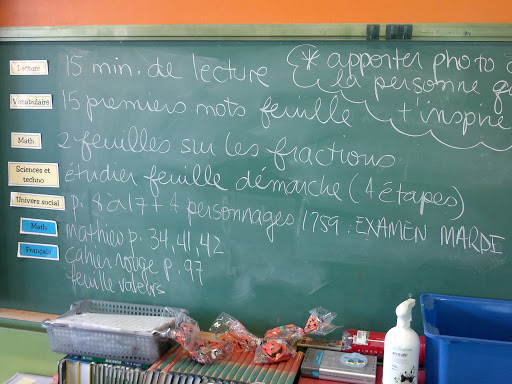 Lecture 15 min. de lecture
* apporter photo
la personne
t'inspire
Vocabulaire 15 premiers mots feuille
Math 2 feuilles sur les fractions
Sciences et techno étudier feuille démarche (4 étapes)
Univers social p. 8 à 17 + 4 personnages 1759. EXAMEN MARDE
Math mathieo p. 34, 41, 42
Français cahier rouge p. 97
feuille valeurs